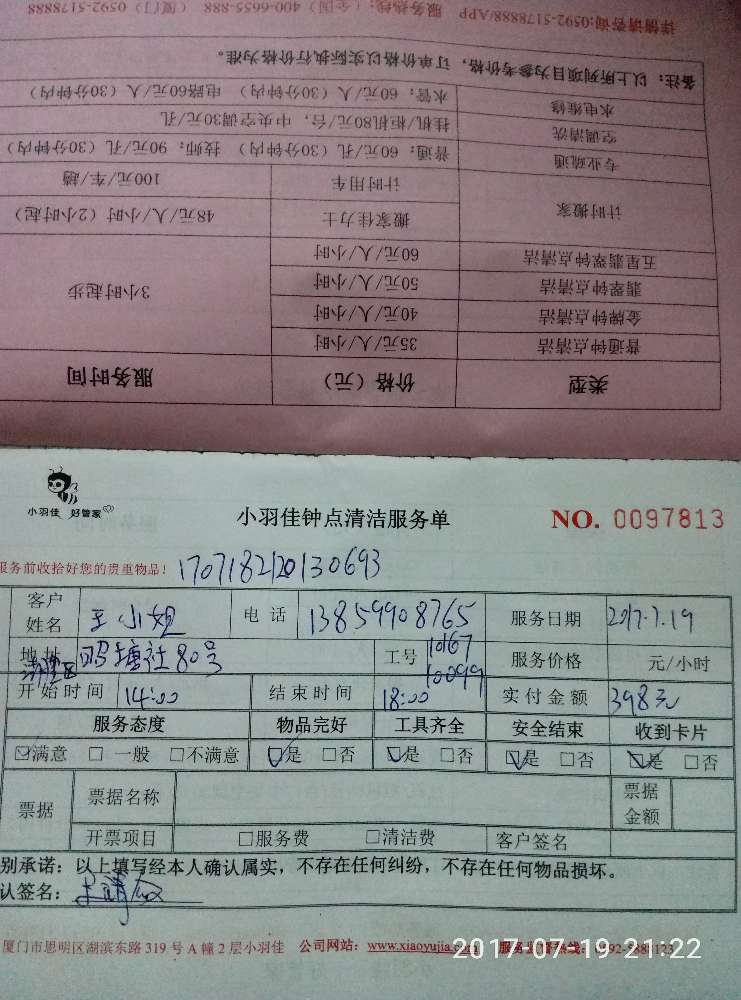 详情请咨询:0592-5178888/APP 服务热线:(全国) 400-6655-888 (厦门) 0592-5178888
备注:以上所列项目为参考价格,订单价格以实际执行价格为准。
水电维修 水管:60元/人(30分钟内) 电路60元/人(30分钟内)
空调清洗 挂机/柜机80元/台,中央空调30元/孔
专业疏通 普通:60元/孔(30分钟内) 技师:90元/孔(30分钟内)
计时搬家 计时用车 100元/车/趟
搬家佳力士 48元/人/小时(2小时起)
五星翡翠钟点清洁 60元/人/小时
翡翠钟点清洁 50元/人/小时 3小时起步
金牌钟点清洁 40元/人/小时
普通钟点清洁 35元/人/小时
类型 价格(元) 服务时间
小羽佳 好管家
小羽佳钟点清洁服务单 NO. 0097813
服务前收拾好您的贵重物品! 1707182120130693
客户姓名 王小姐 电话 13859908765 服务日期 2017.7.19
地址 湖里区 后塘社80号 工号 10167 10099 服务价格 元/小时
开始时间 14:00 结束时间 18:00 实付金额 398元
服务态度 物品完好 工具齐全 安全结束 收到卡片
☑满意 □一般 □不满意 ☑是 □否 ☑是 □否 ☑是 □否 ☑是 □否
票据 票据名称 票据金额
开票项目 □服务费 □清洁费 客户签名
别承诺:以上填写经本人确认属实,不存在任何纠纷,不存在任何物品损坏。
认签名:
厦门市思明区湖滨东路319号A幢2层小羽佳 公司网站:www.xiaoyujia.com 服务监督热线:0592-5888123
2017-07-19 21:22